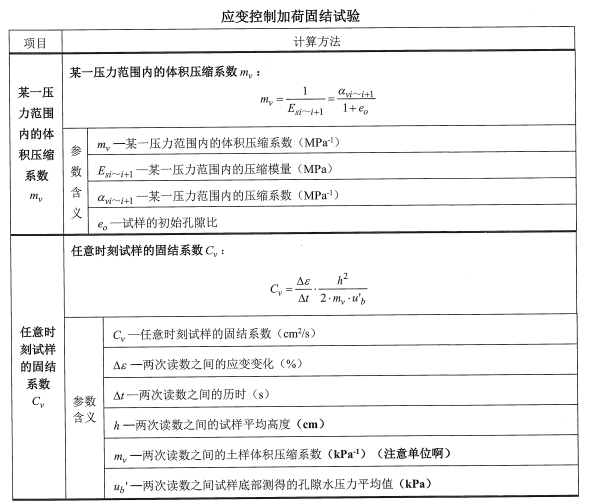 应变控制加荷固结试验
项目
计算方法
某一压
力范围
内的体
积压缩
系数
mᵥ
某一压力范围内的体积压缩系数 mᵥ：
mᵥ = 1 / E_{si～i+1} = α_{vi～i+1} / (1 + e_o)
参
数
含
义
mᵥ —某一压力范围内的体积压缩系数（MPa⁻¹）
E_{si～i+1} —某一压力范围内的压缩模量（MPa）
α_{vi～i+1} —某一压力范围内的压缩系数（MPa⁻¹）
e_o —试样的初始孔隙比
任意时
刻试样
的固结
系数
Cᵥ
任意时刻试样的固结系数 Cᵥ：
Cᵥ = Δε / Δt · h² / (2 · mᵥ · u'_b)
参数
含义
Cᵥ —任意时刻试样的固结系数（cm²/s）
Δε —两次读数之间的应变变化（%）
Δt —两次读数之间的历时（s）
h —两次读数之间的试样平均高度（cm）
mᵥ —两次读数之间的土样体积压缩系数（kPa⁻¹）（注意单位啊）
u_b' —两次读数之间试样底部测得的孔隙水压力平均值（kPa）